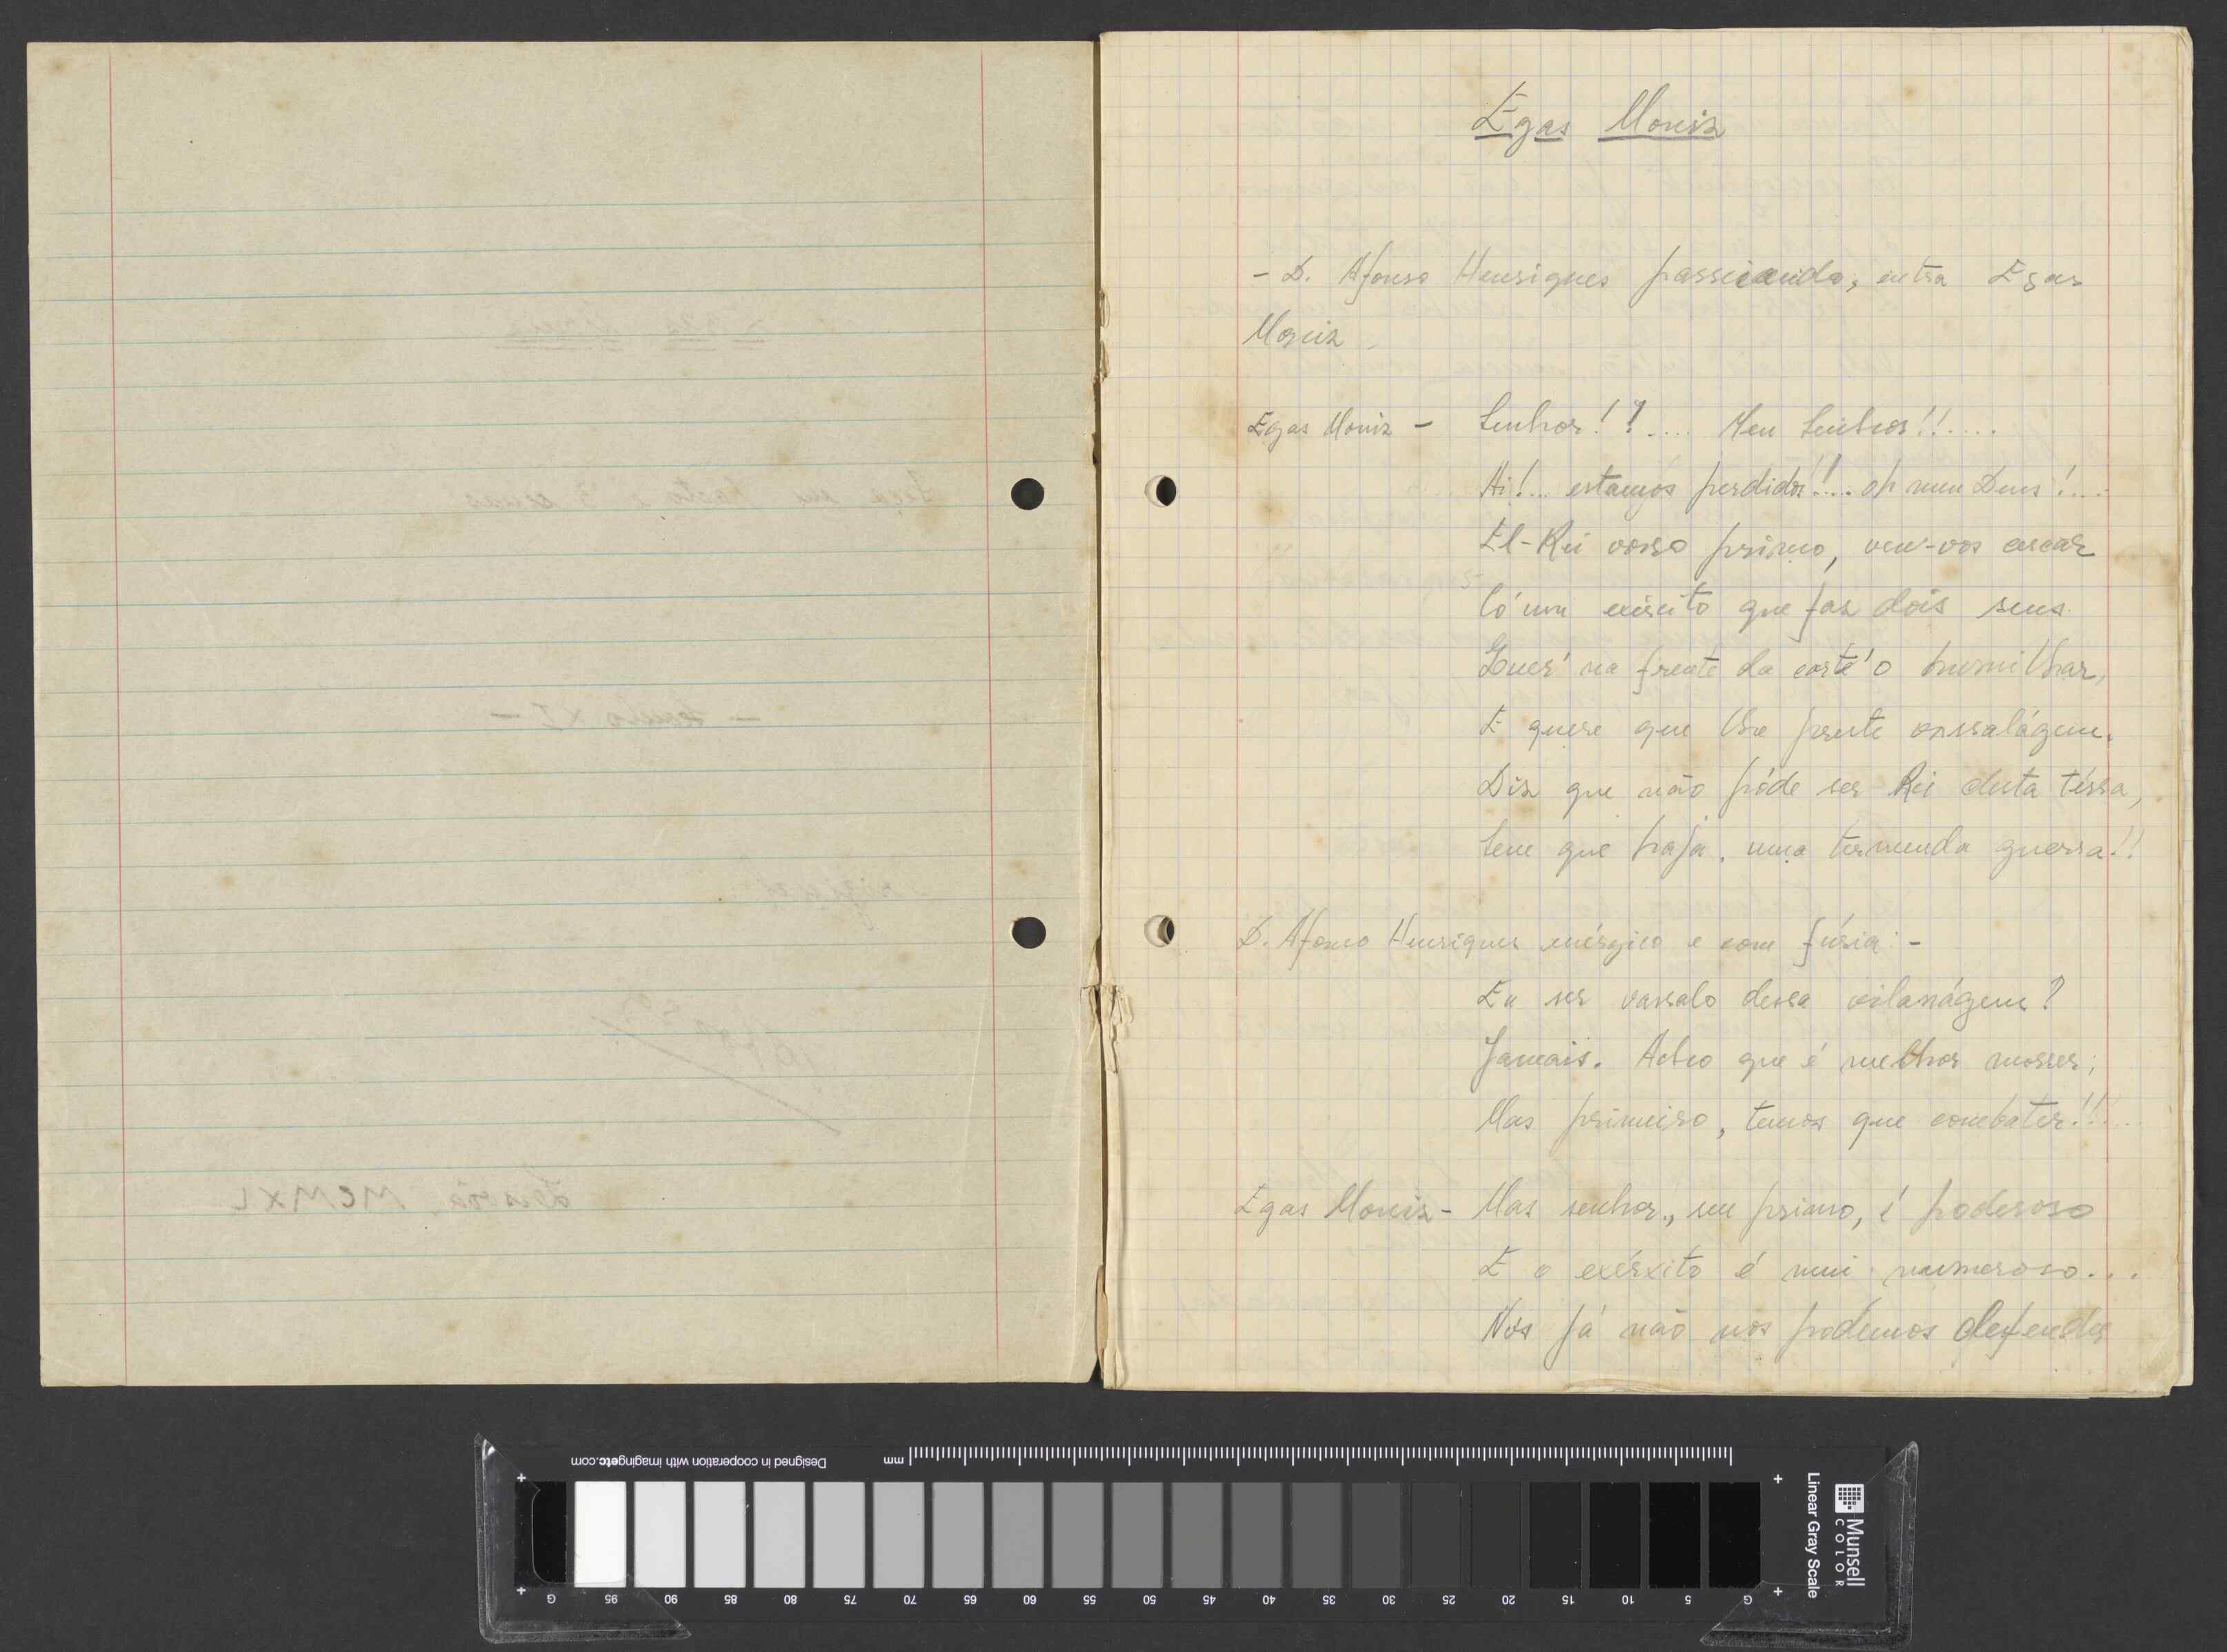 Egas Moniz
- D. Afonso Henriques passeiando, entra Egas
Moniz.
Egas Moniz - Senhor!!.... Meu Senhor!!....
Ai!... estamos perdidos!!... oh meu Deus!...
El-Rei vosso primo, vem-vos cercar
Có'um exército que faz dois seus
Quer' na frente da corte'o humilhar,
E quere que lhe preste vassalágem.
Diz que não póde ser Rei desta térra,
Sem que haja, uma tremenda guerra!!
D. Afonso Henriques enérgico e com fúria: -
Eu ser vassalo dessa vilanágem?
Jamais. Acho que é melhor morrer;
Mas primeiro, temos que combater!!...
Egas Moniz - Mas senhor, seu primo, é poderoso
E o exérxito é mui numeroso...
Nós já não nos podemos defender
Designed in cooperation with imagingetc.com
mm
Munsell
COLOR
Linear Gray Scale
G 95 90 85 80 75 70 65 60 55 50 45 40 35 30 25 20 15 10 5 G